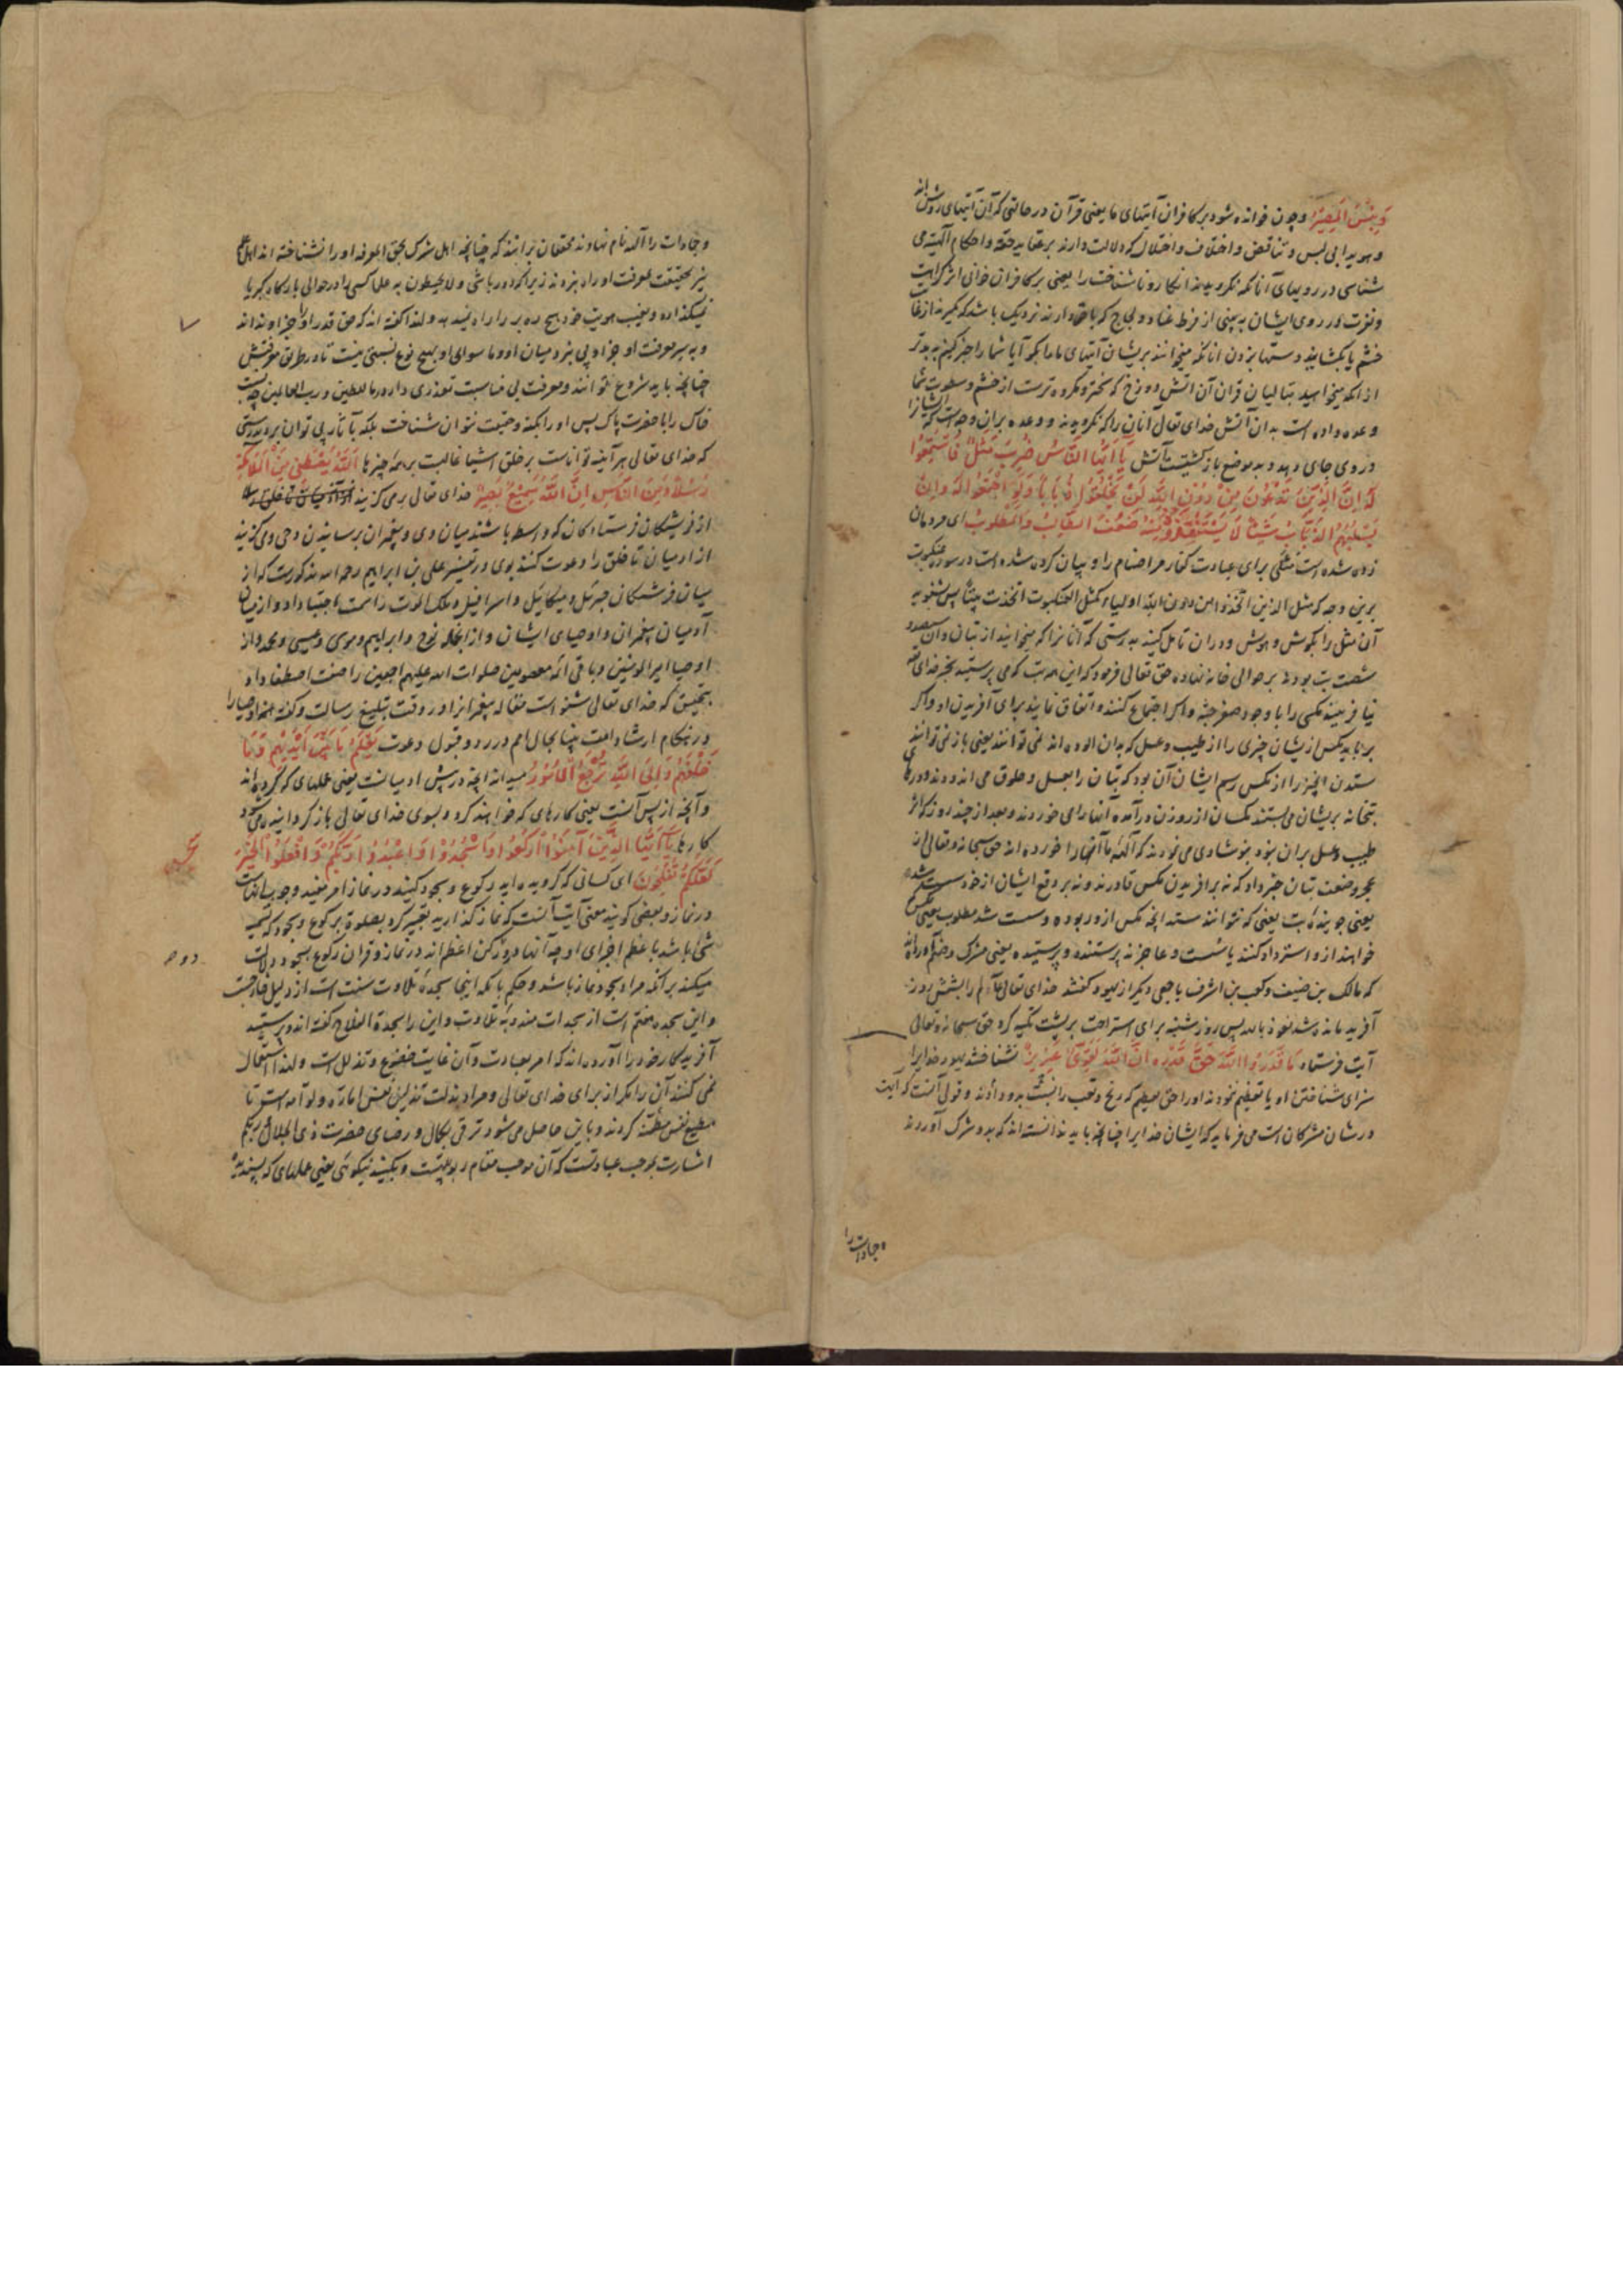 وَبِئْسَ الْمَصِیْرُ و چون خوانده شود بر کافران آیتهای ما یعنی قرآن در حالتی که آن آیتهای روشن‌اند
و هویدا بی لبس و تناقض و اختلاف و اختلال که دلالت دارند بر عقاید حقه و احکام الهیه می
شناسی در رویهای آنانکه نگرویده‌اند انکار و ناشناخت را یعنی بر کافران خوانی اثر کراهیت
و نفرت در روی ایشان به بینی از فرط عناد و لجاج که با حق دارند نزدیک باشد که گیرند از غایت
خشم یا بکشایند دستها بزدن آنانکه میخوانند بریشان آیتهای ما را بگو آیا شما را خبر کنم به بدتر
از آنکه میخواهید بتالیان قران آن اتش دوزخ که سخت‌تر و مکروه‌ترست از خشم و سطوت شما
وعده داده است بدان آتش خدای تعالی آنان را که نگرویدند و وعده بران وجه است که ایشانرا
در وی جای دهد و بد موضع بازگشتیست آتش یَا أَیُّهَا النَّاسُ ضُرِبَ مَثَلٌ فَاسْتَمِعُوا
لَهُ إِنَّ الَّذِیْنَ تَدْعُونَ مِنْ دُوْنِ اللَّهِ لَنْ یَخْلُقُوا ذُبَابًا وَلَوِ اجْتَمَعُوا لَهُ وَإِنْ
یَسْلُبْهُمُ الذُّبَابُ شَیْئًا لَا یَسْتَنْقِذُوْهُ مِنْهُ ضَعُفَ الطَّالِبُ وَالْمَطْلُوبُ ای مردمان
زده شده است مثلی برای عبادت کفار مر اصنام را و بیان کرده شده است در سوره عنکبوت
برین وجه که مثل الذین اتخذوا من دون الله اولیاء کمثل العنکبوت اتخذت بیتا پس بشنوید
آن مثل را بگوش و هوش و دران تامل کنید بدرستی که آنانرا که میخوانید از بتان و آن سیصد و
شصت بت بود که بر حوالی خانه نهاده حق تعالی فرمود که این همه بت که می پرستید بجز خدای
نیافرینند مگسی را با وجود صغر جثه و اگر اجتماع کنند و اتفاق نمایند برای آفریدن او و اگر
برباید مگس ازیشان چیزی را از طیب و عسل که بدان الوده‌اند نمی توانند یعنی باز نمی توانند
ستدن آنچیز را از مگس رسم ایشان آن بود که بتان را بعسل و خلوق می اندودند و درهای
بتخانه بریشان می بستند مگسان از روزن درآمده آنها را می خوردند و بعد از چند روز که اثر
طیب و عسل بران نبود بنو شادی می نمودند که آلهه ما آنها را خورده‌اند حق سبحانه و تعالی از
عجز و ضعف بتان خبر داد که نه بر افریدن مگس قادرند و نه بر دفع ایشان از خود سست شد
یعنی جوینده بت یعنی که نتوانند ستد انچه مگس ازو ربوده و سست شد مطلوب یعنی مگس
خواهند ازو استرداد کنند یا سست و عاجزند پرستنده و پرستیده یعنی مشرک و صنم آورده‌اند
که مالک بن ضیف و کعب بن اشرف با جمعی دیگر از یهود گفتند خدای تعالی عالم را بشش روز
آفرید مانده شد نعوذ بالله پس روز شنبه برای استراحت بر پشت تکیه کرد حق سبحانه و تعالی
آیت فرستاد مَا قَدَرُوا اللَّهَ حَقَّ قَدْرِهِ إِنَّ اللَّهَ لَقَوِیٌّ عَزِیزٌ نشناختند یهود خدایرا
سزای شناختن او یا تعظیم ننمودند او را حق تعظیم که رنج و تعب را نسبت بدو دادند و قولی آنست که آیت
در شان مشرکان است می فرماید که ایشان خدایرا چنانچه باید ندانسته‌اند که بدو شرک آوردند
و جمادات را
و جمادات را آلهه نام نهادند محققان برانند که چنانچه اهل شرک بحق المعرفه او را نشناخته‌اند اهل علم
نیز بحقیقت معرفت او راه نبرده‌اند زیرا که دورباش و لا یحیطون به علما کسی را در حوالی بارگاه کبریا
نمیگذارد و بغیب هویت خود هیچ رهبر را راه نمیدهد و لهذا گفته‌اند که حق قدر او را جز او نداند
و به سر معرفت او جز او پی نبرد میان او و ما سوای او بهیچ نوع نسبتی نیست تا در طریق معرفتش
چنانچه باید شروع توانند و معرفت بی مناسبت تعذری دارد ما للطین و رب العالمین چه نسبت
خاک را با حضرت پاک پس او را بکنه و حقیقت نتوان شناخت بلکه بآثار پی توان برد بدرستی
که خدای تعالی هر آینه تواناست بر خلق اشیا غالبست بر همه چیزها اَللَّهُ یَصْطَفِیْ مِنَ الْمَلَائِکَةِ
رُسُلًا وَمِنَ النَّاسِ إِنَّ اللَّهَ سَمِیْعٌ بَصِیْرٌ خدای تعالی برمی گزیند
از فریشتگان فرستادگان که واسطه باشند میان وی و پیغمبران برسانیدن وحی و می گزیند
از ادمیان تا خلق را دعوت کنند بوی و در تفسیر علی بن ابراهیم رحمه الله مذکورست که از
میان فرشتگان جبرئیل و میکائیل و اسرافیل و ملک الموت را سمت اجتبا داد و از میان
آدمیان پیغمبران و اوصیای ایشان و از انجمله نوح و ابراهیم و موسی و عیسی و محمد و از
اوصیا امیرالمومنین و باقی ائمه معصومین صلوات الله علیهم اجمعین را صفت اصطفا داد
بتحقیق که خدای تعالی شنواست مقاله پیغمبرانرا در وقت تبلیغ رسالت و گفته همه اوصیا را
در هنگام ارشاد امت بینا بحال امم در رد و قبول دعوت یَعْلَمُ مَا بَیْنَ أَیْدِیْهِمْ وَمَا
خَلْفَهُمْ وَإِلَی اللَّهِ تُرْجَعُ الْأُمُوْرُ میداند انچه در پیش ادمیانست یعنی عملهای که کرده‌اند
و آنچه از پس آنست یعنی کارهای که خواهند کرد و بسوی خدای تعالی باز گردانیده می شود
کارها یَا أَیُّهَا الَّذِیْنَ آمَنُوا ارْکَعُوا وَاسْجُدُوا وَاعْبُدُوا رَبَّکُمْ وَافْعَلُوا الْخَیْرَ
لَعَلَّکُمْ تُفْلِحُونَ ای کسانی که گرویده‌اید رکوع و سجود کنید در نماز امر مفید وجوب انهاست
در نماز و بعضی گویند معنی آیت آنست که نماز گذارید تعبیر کرد بصلوة برکوع و سجود که تسمیه
شئ باشد باعظم اجزای او چه آنها دو رکن اعظم‌اند در نماز و قران رکوع بسجود دلالت
میکند برانکه مراد سجود نماز باشد و حکم بانکه اینجا سجده تلاوت سنت است از دلیل خارجست
و این سجده هفتم است از سجدات مندوبه تلاوت و این را سجدة الفلاح گفته‌اند و پرستید
آفریدگار خود را آورده‌اند که امر بعبادت و آن غایت خضوع و تذلل است و لهذا استعمال
نمی کنند آن را مگر از برای خدای تعالی و مراد بذلت تذلیل نفس اماره و لوامه است تا
مطیع نفس مطمئنه گردند و باین حاصل می شود ترقی بکمال و رضای حضرت ذی الجلال و ربکم
اشارت بموجب عبادتست که آن موجب مقام ربوبیتست و بکنید نیکوئی یعنی عملهای که پسندیده
دوم